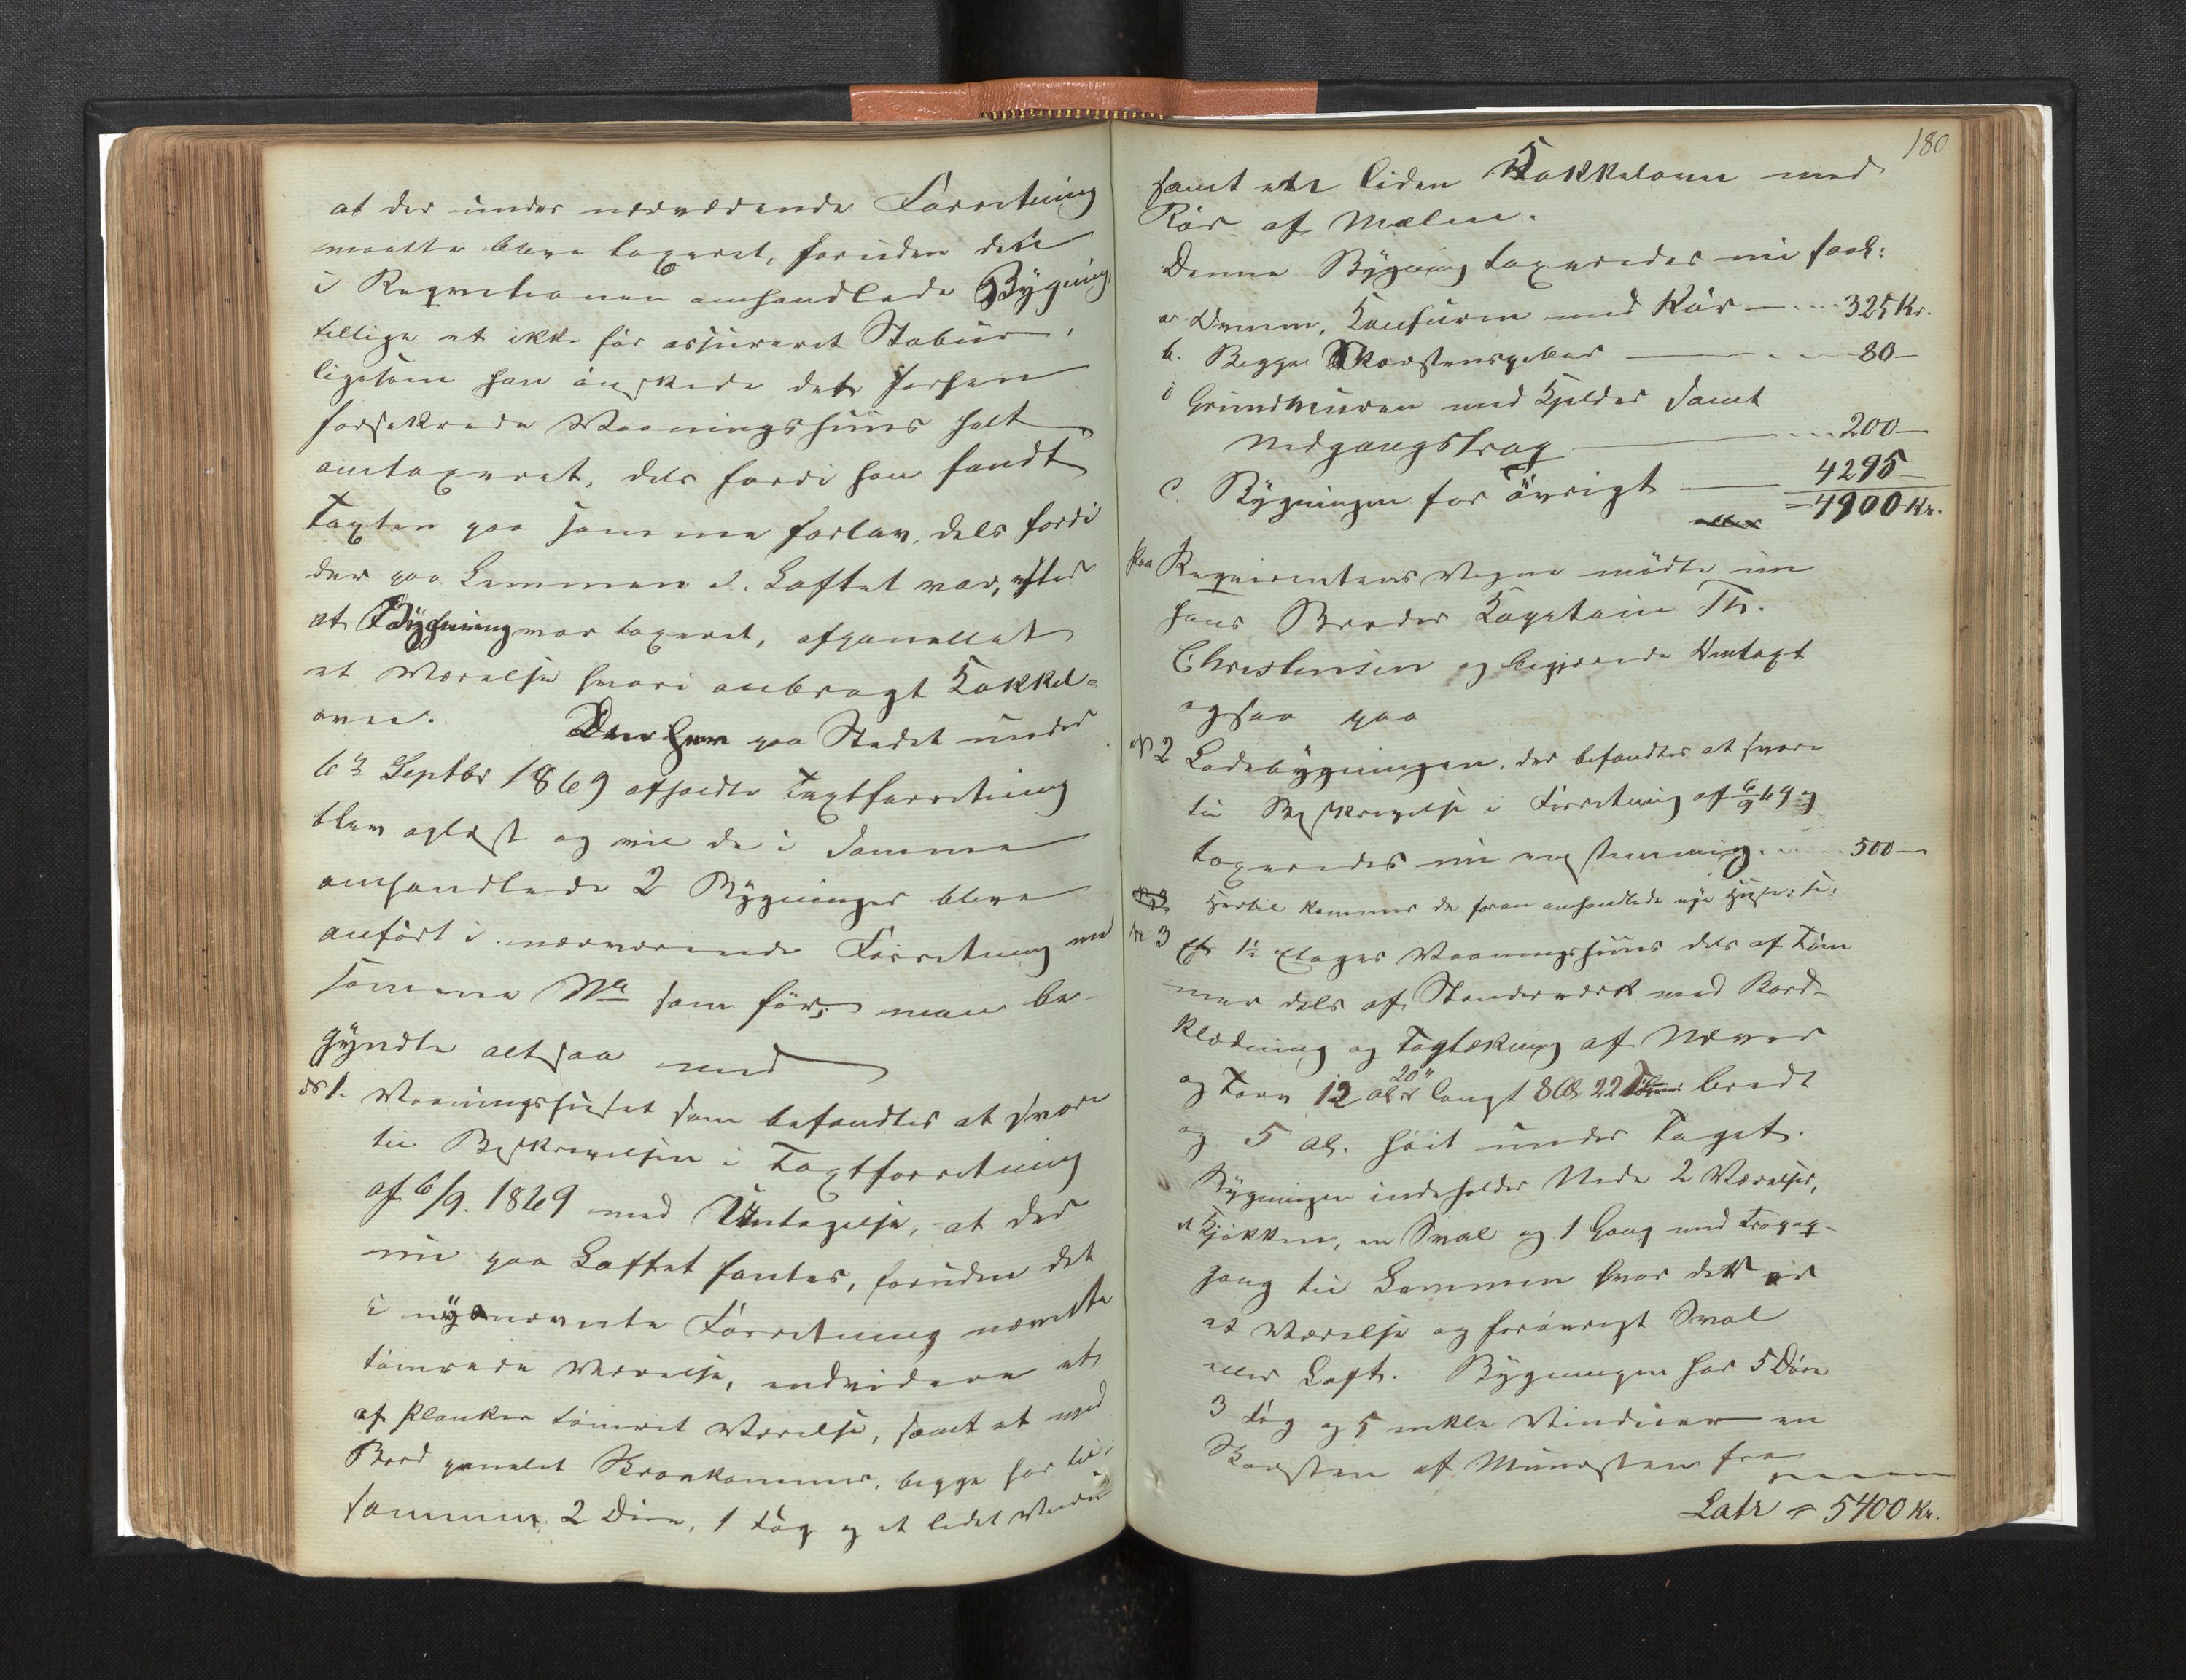 at der under nærværende Forretning
maatte blive taxeret, foruden det
i Reqvisitionen omhandlede Bygning,
tillige et ikke før assureret Stabur,
ligesom han ønskede det forhen
forsikrede Vaaningshuus helt
omtaxeret, dels fordi han fandt
Taxten paa samme forlav, dels fordi
der paa Lemmen el. Loftet var, efter
at Bygning var taxeret, afpanellet
et Værelse hvori anbragt Kakkel-
ovn. Den her paa Stedet under
6te Septbr 1869 afholdte Taxtforretning
blev oplæst og vil de i samme
omhandlede 2 Bygninger blive
anført i nærværende Forretning med
samme No som før; man be-
gyndte altsaa med
No 1. Vaaningshuset som befandtes at svare
til Beskrivelsen i Taxtforretning
af 6/9. 1869 med Undtagelse, at der
nu paa Loftet fantes, foruden det
i nysnævnte Forretning nævnte
tømrede Værelse, endvidere et
af Planker tømret Værelse, samt et med
Bord panelet Kramkammer, begge har til-
sammen 2 Døre, 1 Fag og et lidet Vindu
180
samt en liden Kakkelovn med
Rør af Malm.
Denne Bygning taxeredes nu saal:
a. Ovnen, Komfuren med Rør 325 Kr.
b. Begge Skorstenspiber 80
Grundmuren med Kjelder samt
Nedgangstrap 200
c. Bygningen for øvrigt 4295
= 4900 Kr.
Paa Reqvirentens Vegne mødte nu
hans Broder Kaptain Th.
Christensen og begjærede Omtaxt
ogsaa paa
No 2 Ladebygningen, der befandtes at svare
til Beskrivelse i Forretning af 6/9 69 og
taxeredes nu enstemmig 500
Hertil kommer de foran omhandlede nye Huse:
No 3 Et 1½ Etages Vaaningshuus dels af Tøm
mer dels af Stenderværk med Bord-
klædning og Tagtækning af Næver
og Torv 12 al 20" langt 8 al. 22 Tommer bredt
og 5 al. høit under Taget.
Bygningen indeholder Nede 2 Værelser,
et Kjøkken, en Sval og 1 Gang med Trapop-
gang til Lemmen hvor det er
et Værelse og forøvrigt Sval
eller Loft. Bygningen har 5 Døre
3 Fag og 5 enkle Vinduer en
Skorsten af Muursten fra
Latr = 5400 Kr.